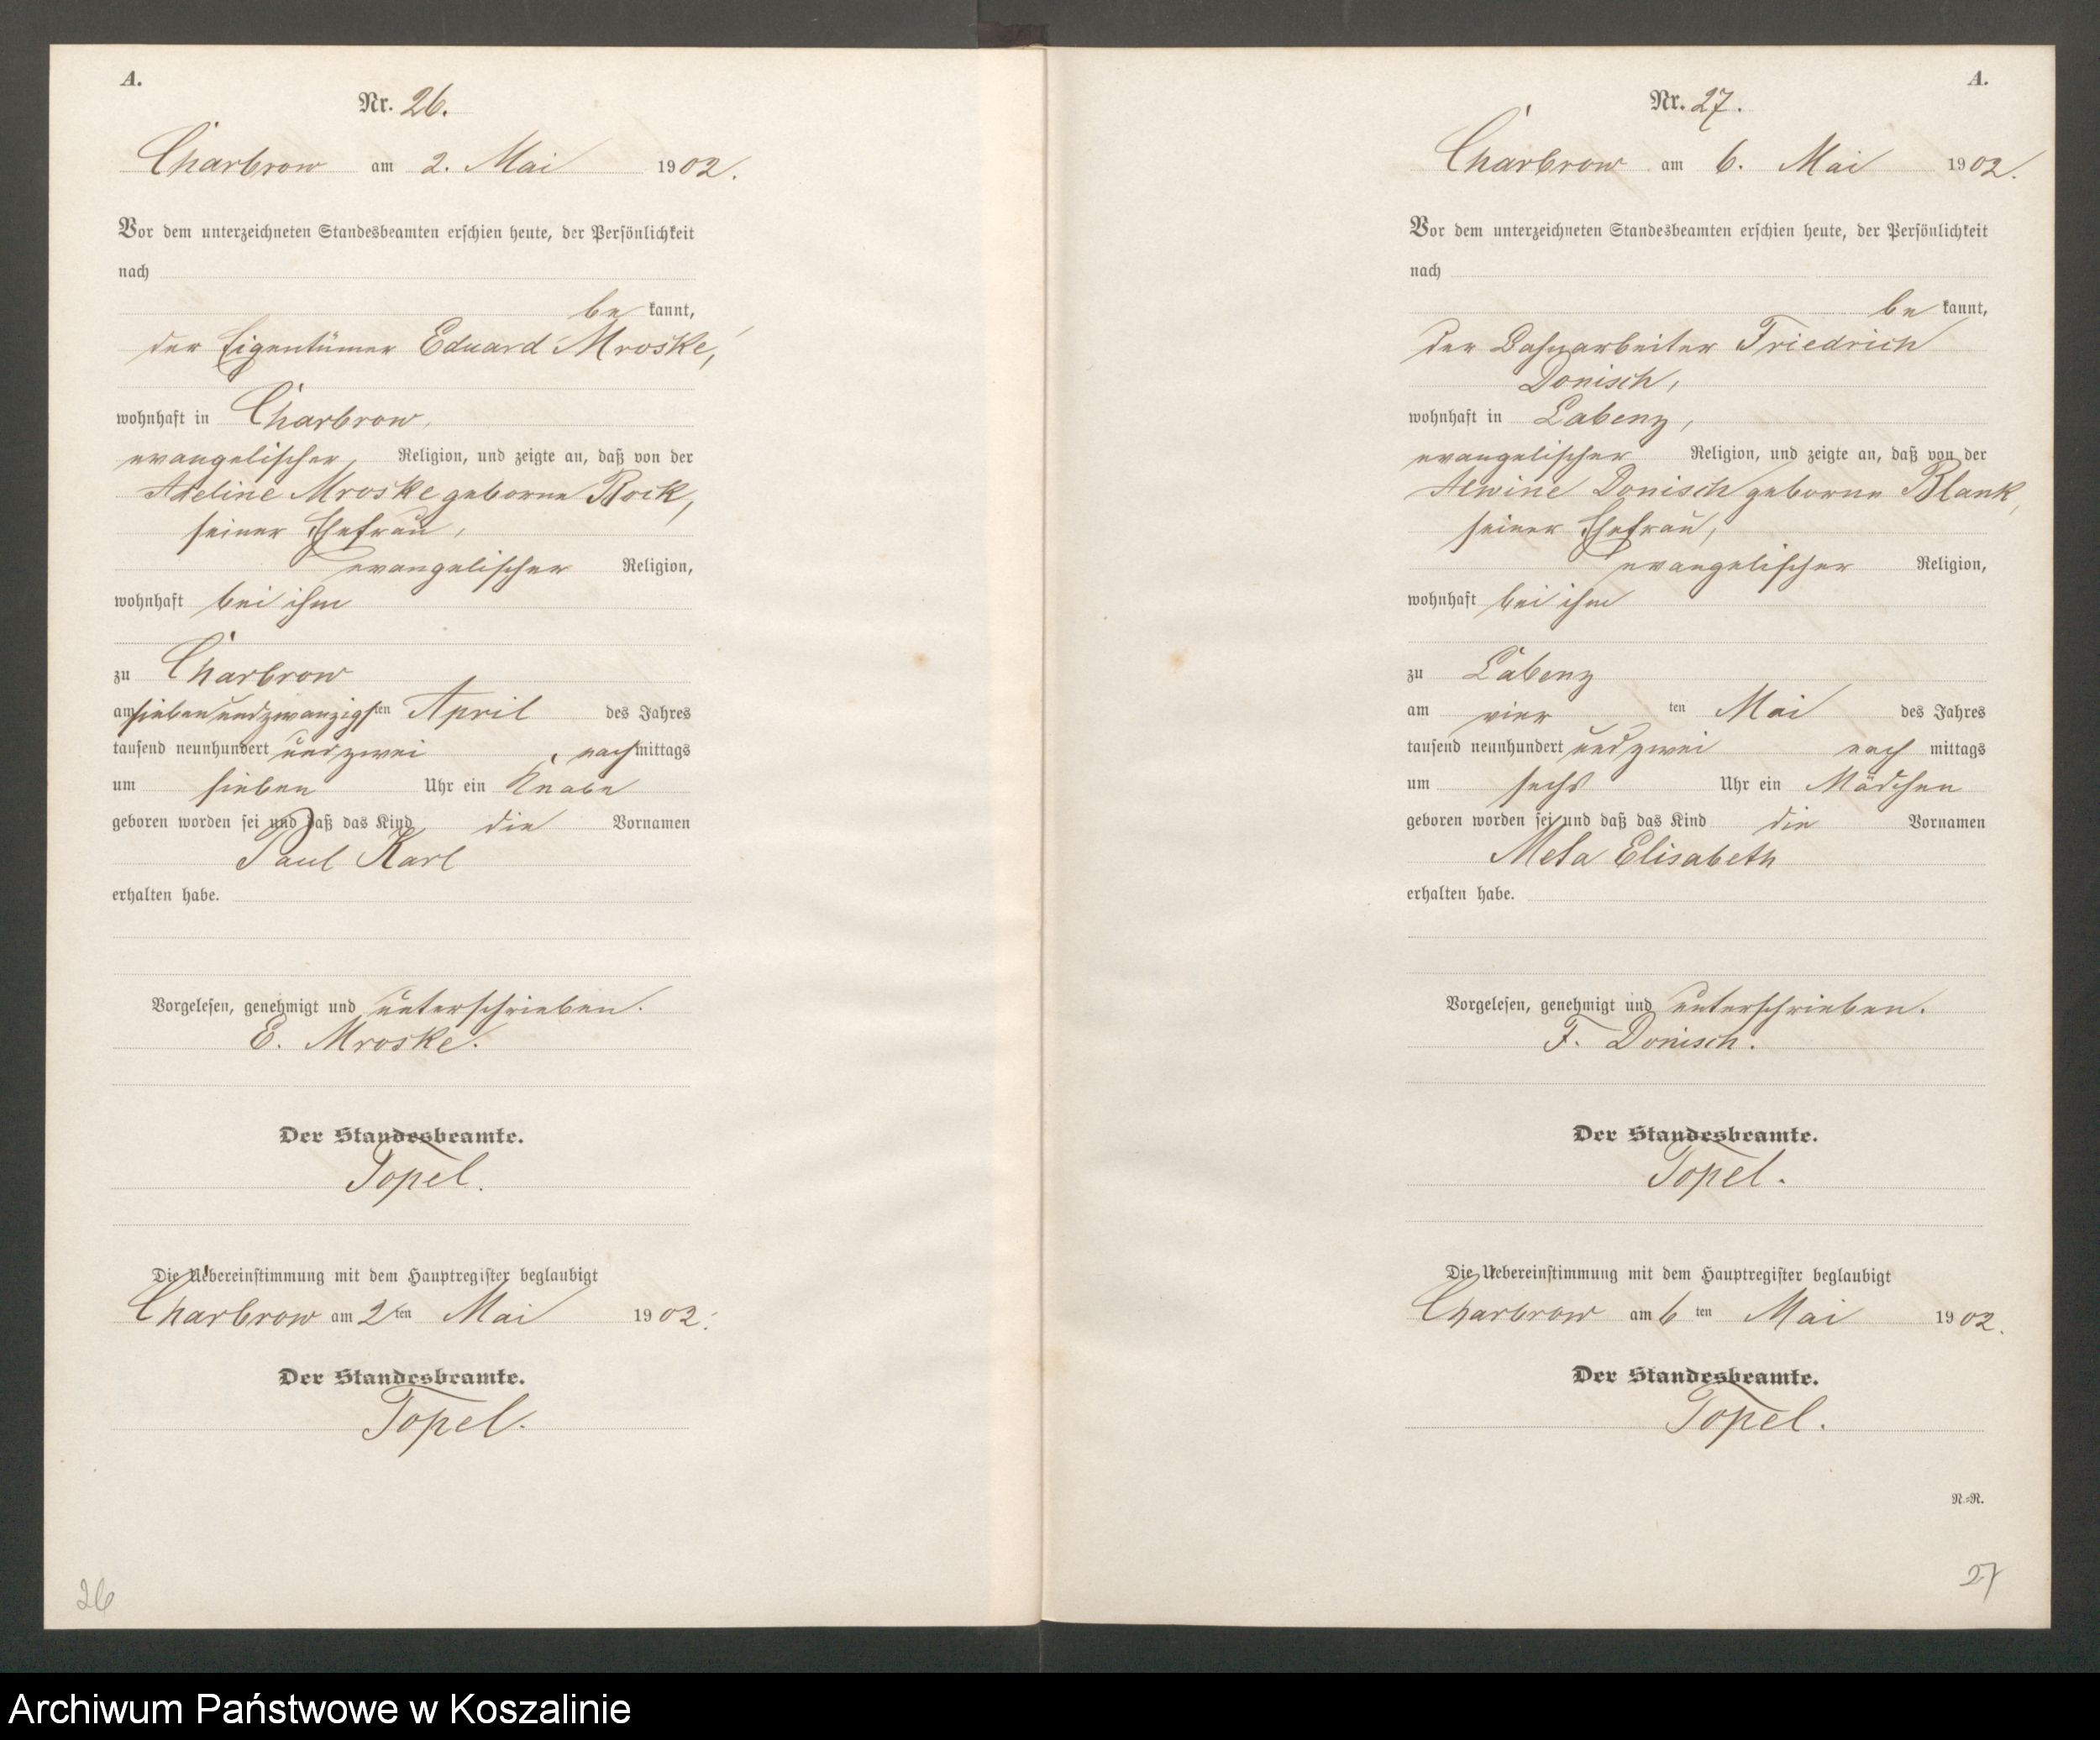 A.
Nr. 26.
Charbrow am 2. Mai 1902.
Vor dem unterzeichneten Standesbeamten erschien heute, der Persönlichkeit
nach
be kannt,
der Eigentümer Eduard Mroske,
wohnhaft in Charbrow,
evangelischer Religion, und zeigte an, daß von der
Adeline Mroske geborne Bock,
seiner Ehefrau,
evangelischer Religion,
wohnhaft bei ihm
zu Charbrow
am siebenundzwanzigsten April des Jahres
tausend neunhundert und zwei, nachmittags
um sieben Uhr ein Knabe
geboren worden sei und daß das Kind die Vornamen
Paul Karl
erhalten habe.
Vorgelesen, genehmigt und unterschrieben.
E. Mroske.
Der Standesbeamte.
Topel.
Die Uebereinstimmung mit dem Hauptregister beglaubigt
Charbrow am 2ten Mai 1902.
Der Standesbeamte.
Topel.
26
A.
Nr. 27.
Charbrow am 6. Mai 1902.
Vor dem unterzeichneten Standesbeamten erschien heute, der Persönlichkeit
nach
be kannt,
der Bahnarbeiter Friedrich
Donisch,
wohnhaft in Labenz,
evangelischer Religion, und zeigte an, daß von der
Alwine Donisch geborne Blank,
seiner Ehefrau,
evangelischer Religion,
wohnhaft bei ihm
zu Labenz
am vier ten Mai des Jahres
tausend neunhundert und zwei nach mittags
um sechs Uhr ein Mädchen
geboren worden sei und daß das Kind die Vornamen
Meta Elisabeth
erhalten habe.
Vorgelesen, genehmigt und unterschrieben.
F. Donisch.
Der Standesbeamte.
Topel.
Die Uebereinstimmung mit dem Hauptregister beglaubigt
Charbrow am 6 ten Mai 1902.
Der Standesbeamte.
Topel.
N.=R.
27
Archiwum Państwowe w Koszalinie